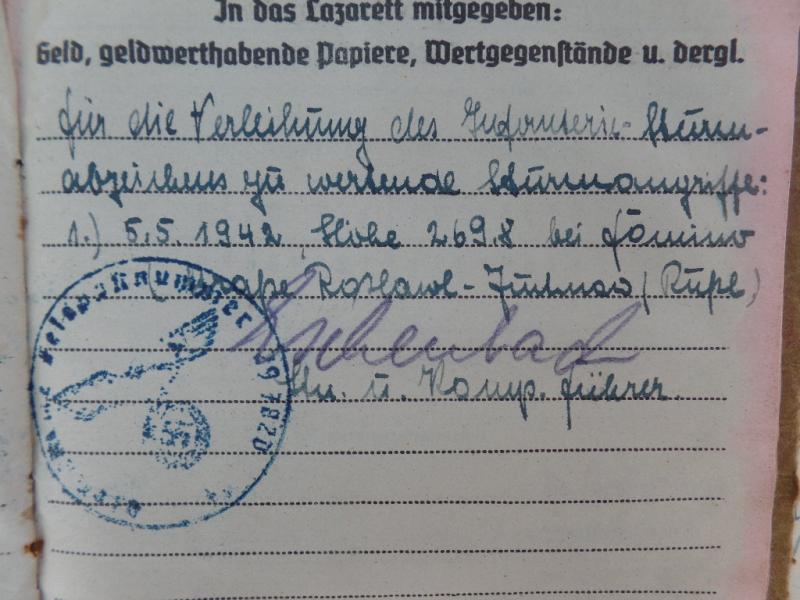 In das Lazarett mitgegeben:
Geld, geldwerthabende Papiere, Wertgegenstände u. dergl.
für die Verleihung des Infanterie-Sturm-
abzeichens zu wertende Sturmangriffe:
1.) 5.5.1942, Höhe 269.8 bei Fomino
Eschenbach
Ltn. u. Komp. führer.
Feldpostnummer